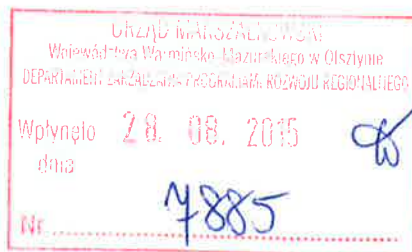 URZĄD MARSZAŁKOWSKI
Województwa Warmińsko-Mazurskiego w Olsztynie
DEPARTAMENT ZARZĄDZANIA PROGRAMAMI ROZWOJU REGIONALNEGO
Wpłynęło 28. 08. 2015
dnia
Nr. 7885